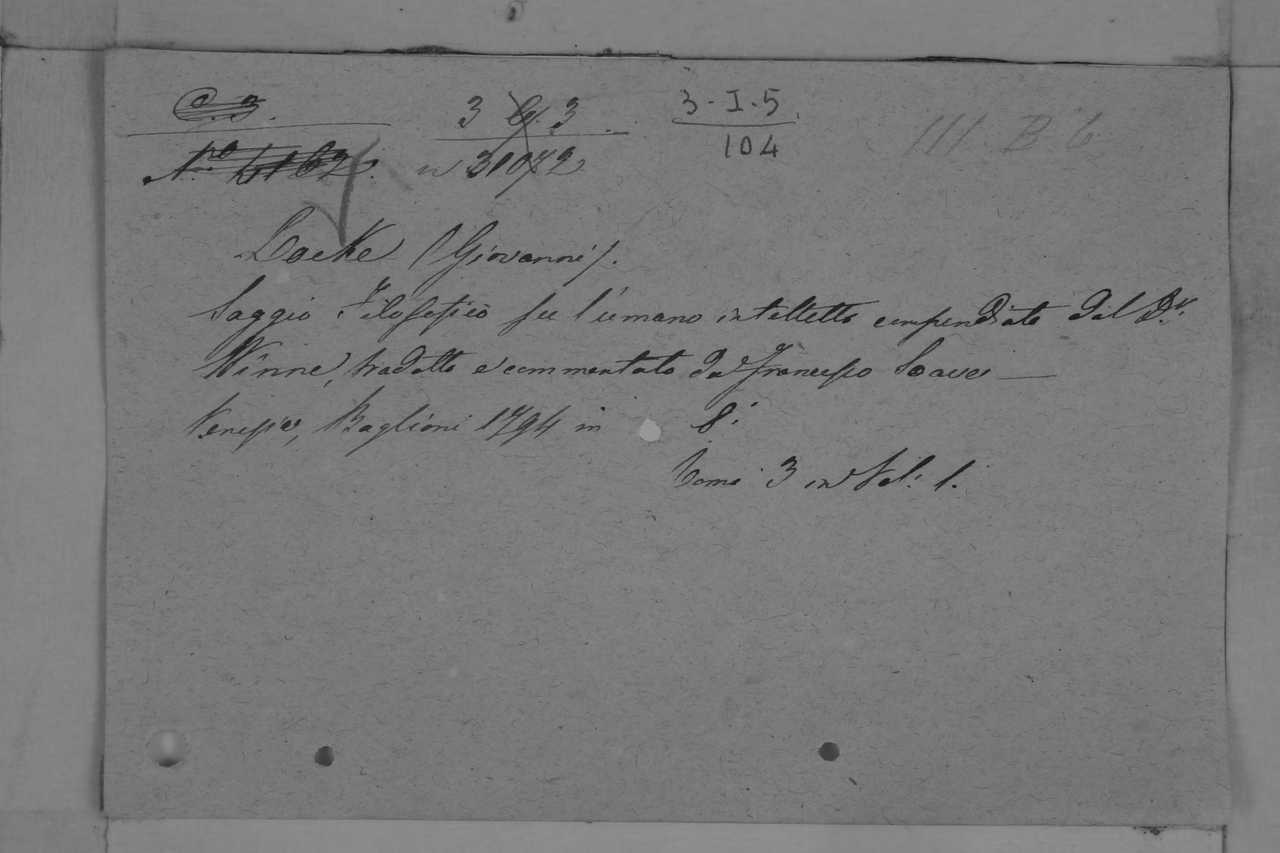 C. 3. 3 G. 3 3-I.5 III. B. 6
N.ro 6162. n 31082 104
Locke (Giovanni).
Saggio Filosofico su l'umano intelletto compendiato dal D.r
Winne, tradotto e commentato da Francesco Soave —
Venezia, Baglioni 1794 in 8.
Tomi 3 in Vol. 1.